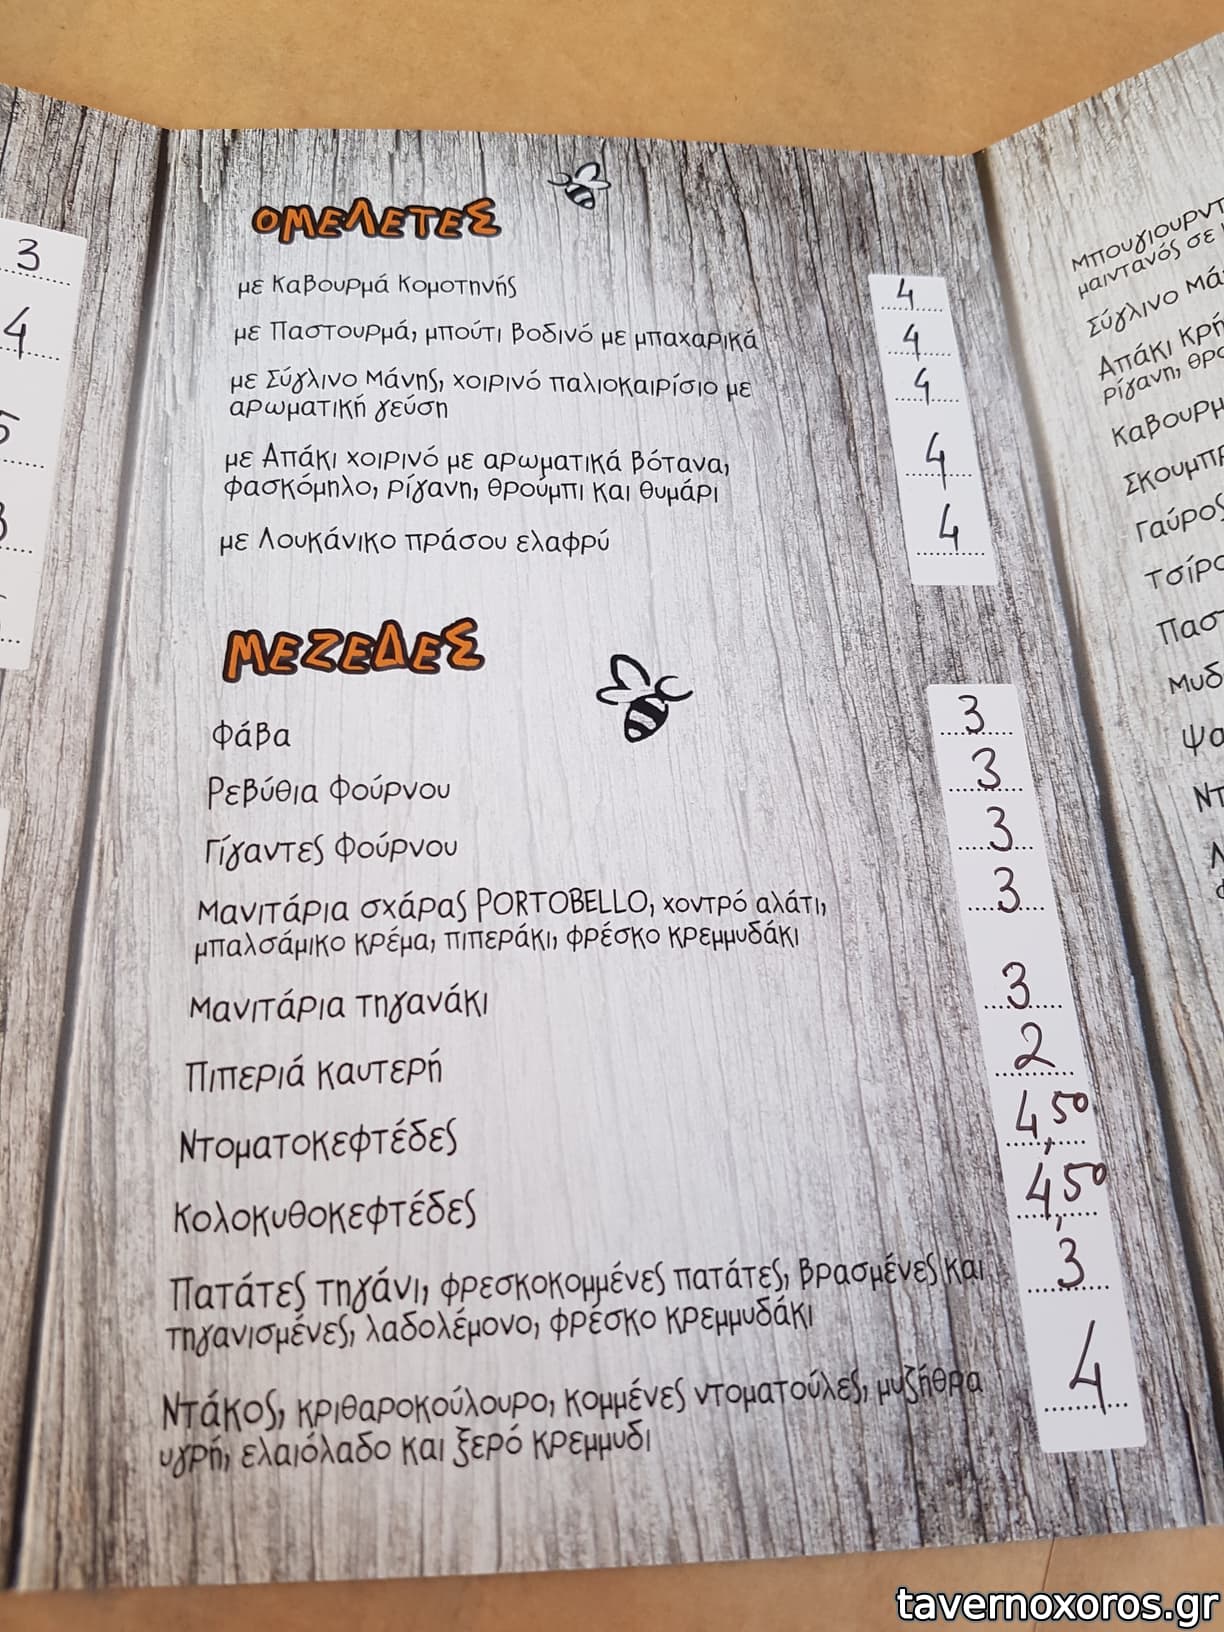 3
4
5
ΟΜΕΛΕΤΕΣ
με Καβουρμά Κομοτηνής 4
με Παστουρμά, μπούτι βοδινό με μπαχαρικά 4
με Σύγλινο Μάνης, χοιρινό παλιοκαιρίσιο με 4
αρωματική γεύση
με Απάκι χοιρινό με αρωματικά βότανα, 4
φασκόμηλο, ρίγανη, θρούμπι και θυμάρι
με Λουκάνικο πράσου ελαφρύ 4
ΜΕΖΕΔΕΣ
Φάβα 3
Ρεβύθια Φούρνου 3
Γίγαντες Φούρνου 3
Μανιτάρια σχάρας PORTOBELLO, χοντρό αλάτι, 3
μπαλσάμικο κρέμα, πιπεράκι, φρέσκο κρεμμυδάκι
Μανιτάρια τηγανάκι 3
Πιπεριά καυτερή 2
Ντοματοκεφτέδες 4,50
Κολοκυθοκεφτέδες 4,50
Πατάτες τηγάνι, φρεσκοκομμένες πατάτες, βρασμένες και 3
τηγανισμένες, λαδολέμονο, φρέσκο κρεμμυδάκι
Ντάκος, κριθαροκούλουρο, κομμένες ντοματούλες, μυζήθρα 4
υγρή, ελαιόλαδο και ξερό κρεμμυδι
μαιντανός σε
Σύγλινο
Απάκι
ρίγανη,
tavernoxoros.gr